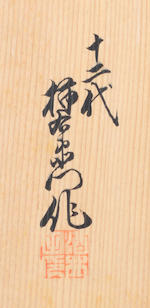 十二代
柿右衛門作